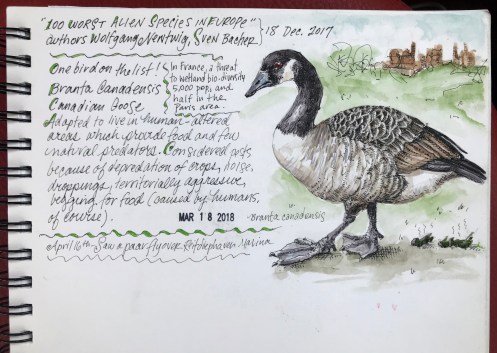 "100 WORST ALIEN SPECIES IN EUROPE"
authors WOLFGANG NENTWIG, SVEN BACHER } 18 Dec. 2017.
One bird on the list!
Branta Canadensis
Canadian Goose
In France, a threat
to wetland bio-diversity
5,000 pop, and
half in the
Paris area.
Adapted to live in human-altered
areas which provide food and few
natural predators. Considered pests
because of depredation of crops, noise,
droppings, territorially aggressive,
begging for food (caused by humans,
of course).
MAR 18 2018
Branta canadensis
April 16th - Saw a pair fly over Marina